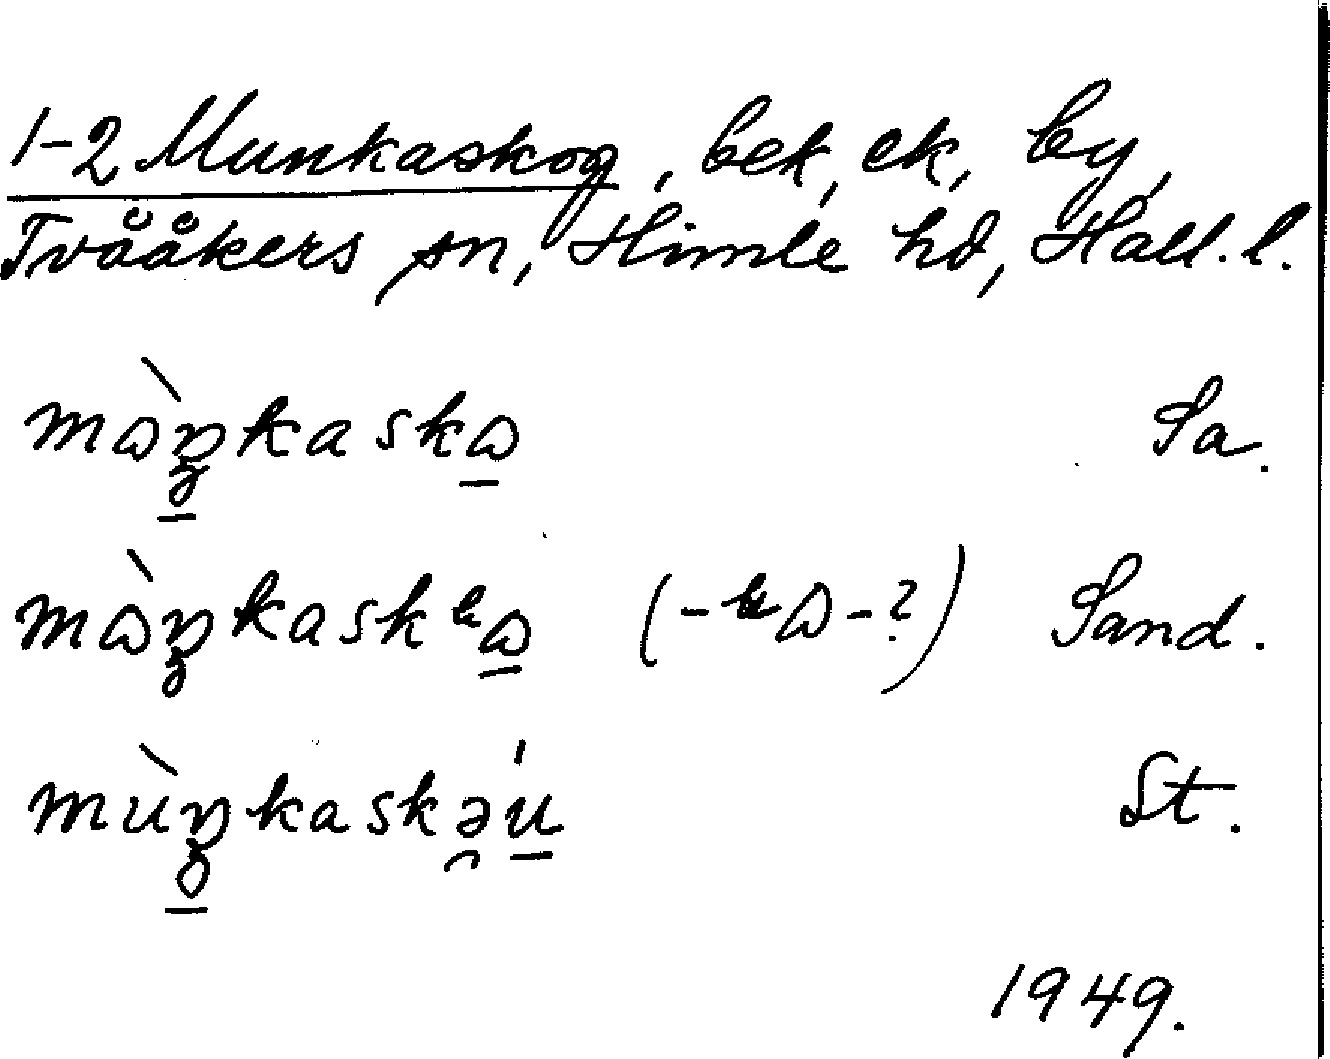 1-2 Munkaskog, bek, ek, by,
Tvååkers sn, Himle hd, Hall. l.
mɷ̀ŋkaskɷ Sa.
mɷ̀ŋkaskᵏɷ (-kɷ-?) Sand.
mùŋkaskə̯ú St.
1949.